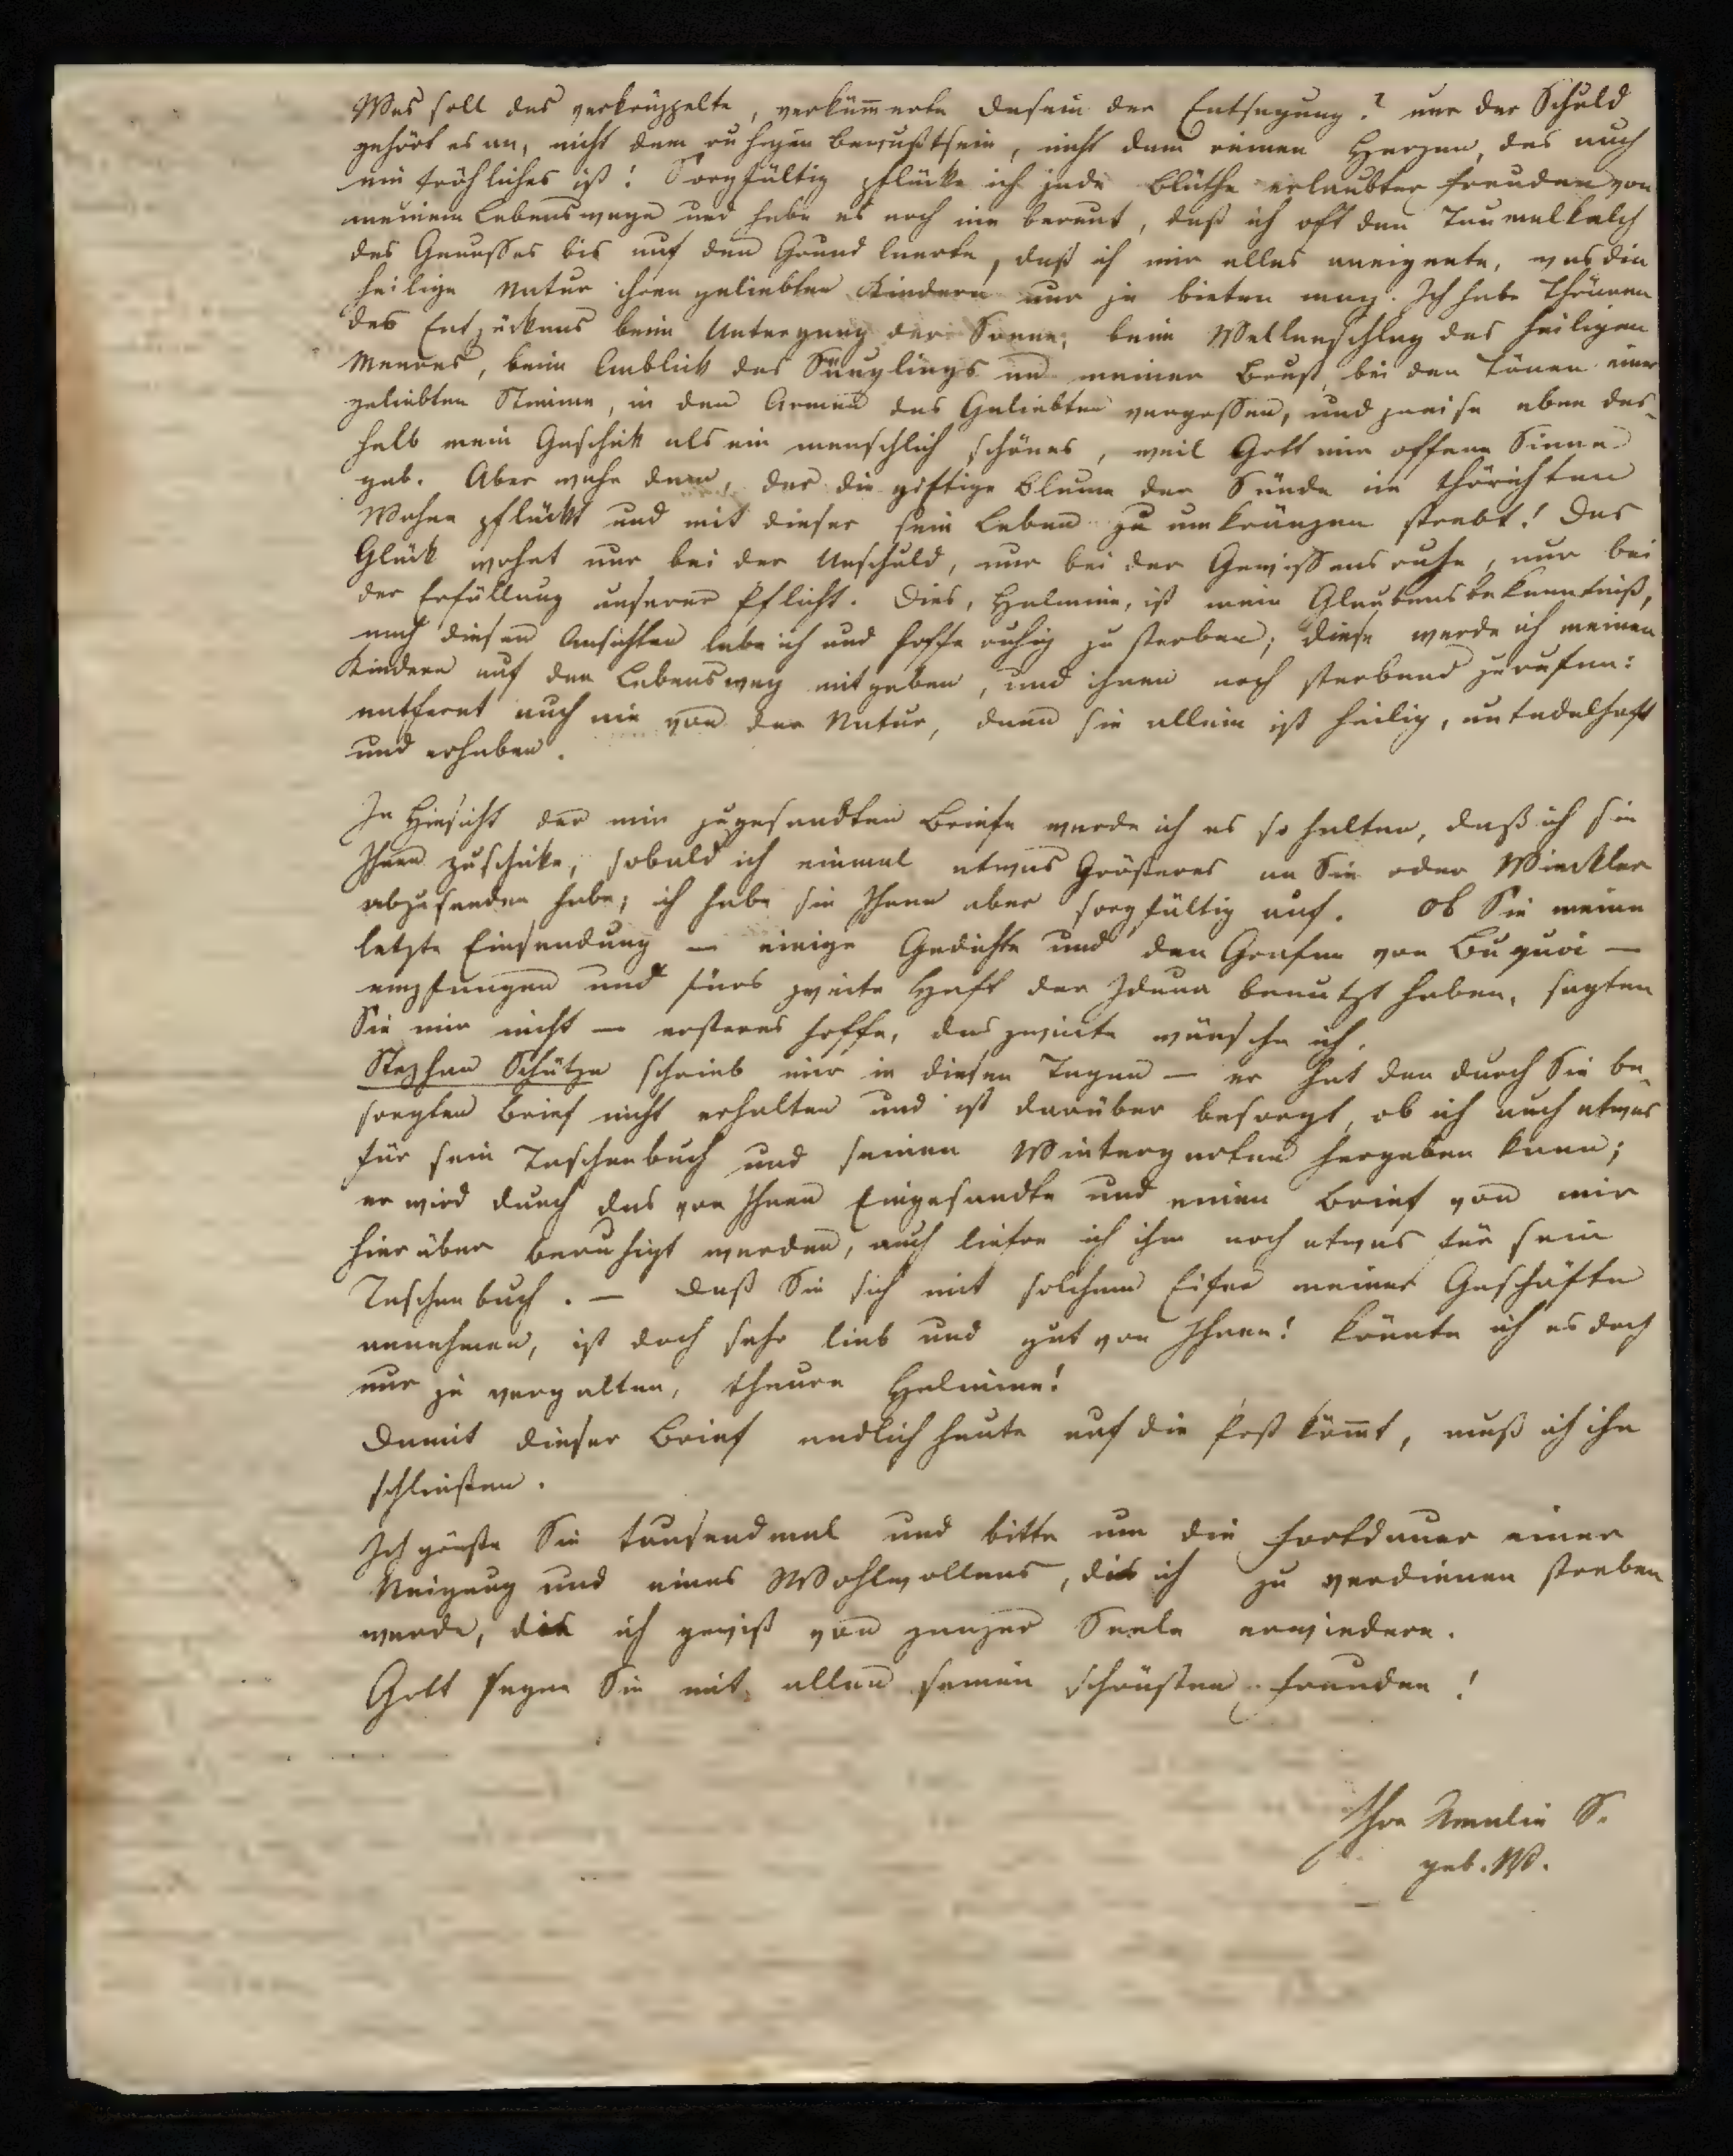 Was soll das verkrüppelte, verküm̅erte Dasein der Entsagung? nur der Schuld
gehört es an, nicht dem ruhigen Bewußtsein, nicht dem reinen Herzen, das auch
ein fröhliches ist! Sorgfältig pflücke ich jede Blüthe erlaubter Freuden von
meinem Lebenswege und habe es noch nie bereut, daß ich oft den Taumelkelch
des Genusses bis auf den Grund leerte, daß ich mir alles aneignete, was die
heilige Natur ihren geliebten Kindern nur je bieten mag. Ich habe Thränen
des Entzückens beim Untergang der Sonne, beim Wellenschlag des heiligen
Meeres, beim Anblick des Säuglings an meiner Brust, bei den Tönen einer
geliebten Stimme, in den Armen des Geliebten vergossen, und preise eben des-
halb mein Geschick als ein menschlich schönes, weil Gott mir offene Sinne
gab. Aber wehe dem, der die giftige Blume der Sünde im thörichten
Wahne pflückt und mit dieser sein Leben zu umkränzen strebt! Das
Glück wohnt nur bei der Unschuld, nur bei der Gewissensruhe, nur bei
der Erfüllung unserer Pflicht. Dies, Helmine, ist mein Glaubensbekenntniß,
nach diesen Ansichten lebe ich und hoffe ruhig zu sterben; diese werde ich meinen
Kindern auf den Lebensweg mitgeben, und ihnen noch sterbend zurufen:
entfernt euch nie von der Natur, denn sie allein ist heilig, untadelhaft
und erhaben.
In Hinsicht der mir zugesandten Briefe werde ich es so halten, daß ich sie
Ihnen zuschicke, sobald ich einmal etwas Größeres an Sie oder Winckler
abzusenden habe; ich hebe sie Ihnen aber sorgfältig auf. Ob Sie meine
letzte Einsendung — einige Gedichte und den Grafen von Buquoi —
empfangen und fürs zweite Heft der Iduna benutzt haben, sagten
Sie mir nicht — ersteres hoffe, das zweite wünsche ich.
Stephan Schütze schrieb mir in diesen Tagen — er hat den durch Sie be-
sorgten Brief nicht erhalten und ist darüber besorgt, ob ich auch etwas
für sein Taschenbuch und seinen Wintergarten hergeben kann;
er wird durch das von Ihnen Eingesandte und einen Brief von mir
hierüber beruhigt werden, auch liefre ich ihm noch etwas für sein
Taschenbuch. — Daß Sie sich mit solchem Eifer meiner Geschäfte
annehmen, ist doch sehr lieb und gut von Ihnen! könnte ich es doch
nur je vergelten, theure Helmine!
Damit dieser Brief endlich heute auf die Post köm̅t, muß ich ihn
schließen.
Ich grüße Sie tausendmal und bitte um die Fortdauer einer
Neigung und eines Wohlwollens, die ich zu verdienen streben
werde, die ich gewiß von ganzer Seele erwiedere.
Gott segne Sie mit allen seinen schönsten Freuden!
Ihre Amalie S.
geb. W.